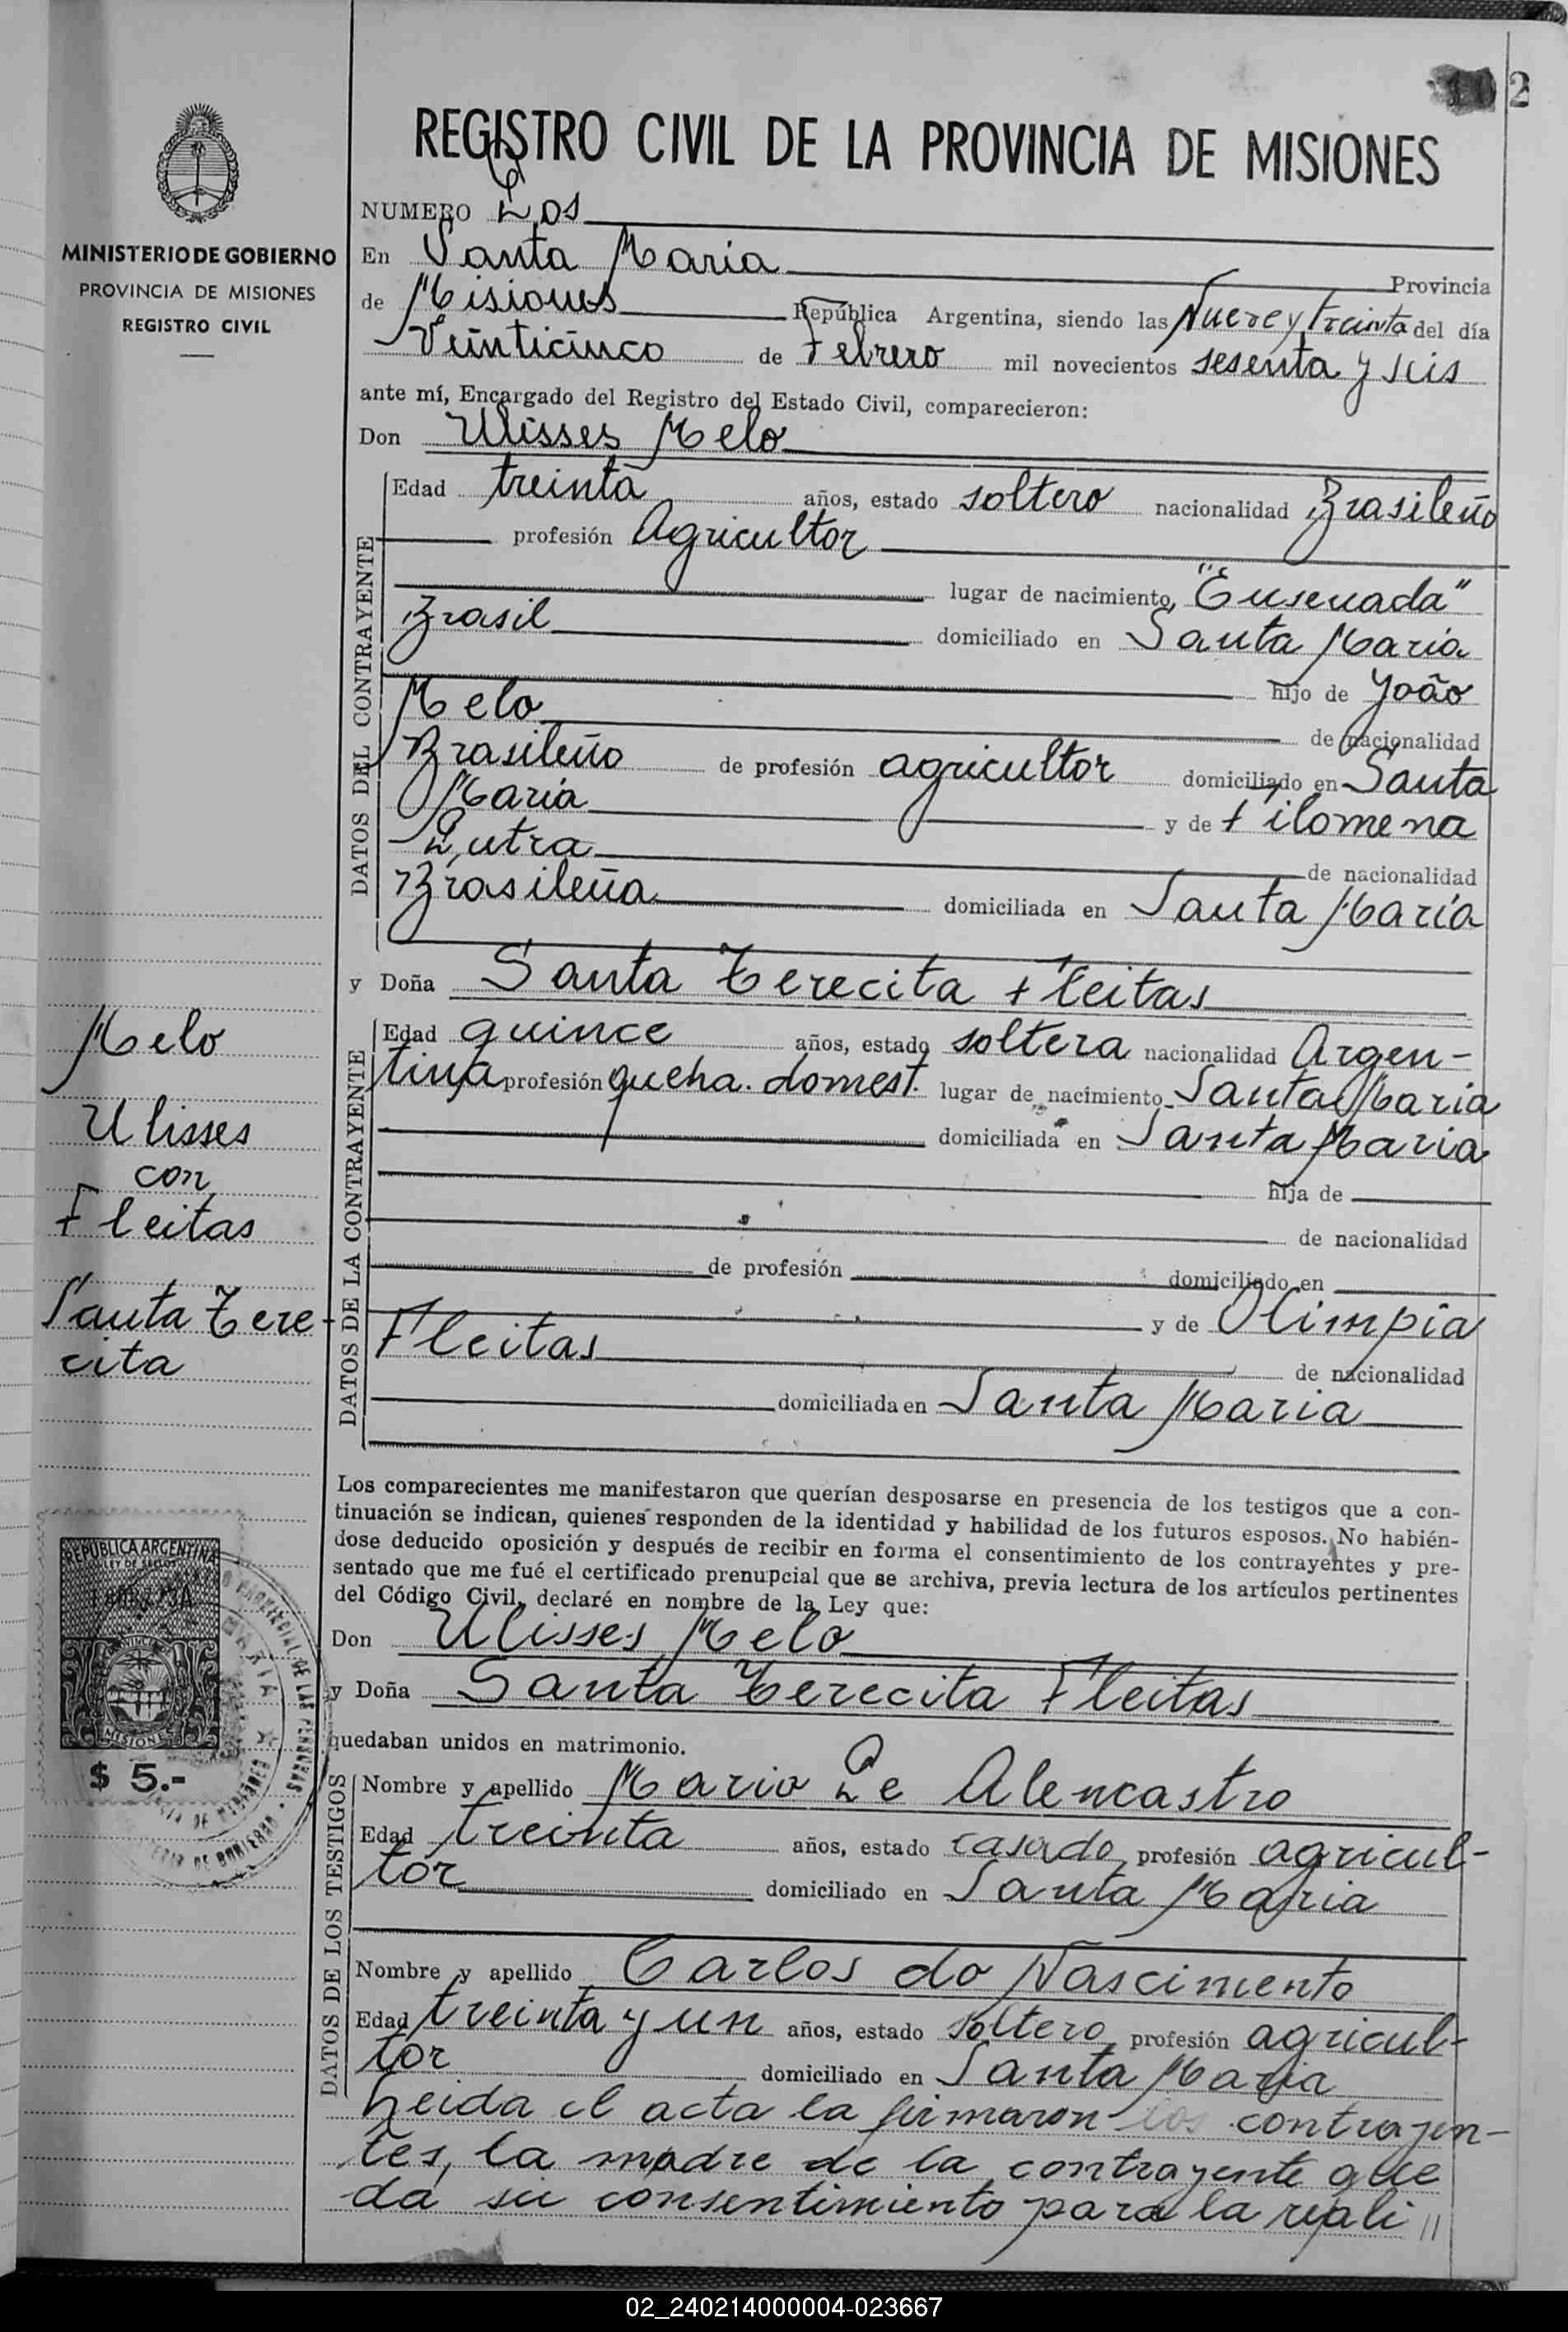 2
REGISTRO CIVIL DE LA PROVINCIA DE MISIONES
MINISTERIO DE GOBIERNO
PROVINCIA DE MISIONES
REGISTRO CIVIL
NUMERO Dos
En Santa Maria Provincia
de Misiones República Argentina, siendo las Nueve y treinta del día
Veinticinco de Febrero mil novecientos sesenta y seis
ante mí, Encargado del Registro del Estado Civil, comparecieron:
Don Ulisses Melo
DATOS DEL CONTRAYENTE
Edad treinta años, estado soltero nacionalidad Brasileño
profesión Agricultor
lugar de nacimiento "Ensenada"
Brasil domiciliado en Santa Maria
hijo de João
Melo de nacionalidad
Brasileño de profesión agricultor domiciliado en Santa
Maria y de Filomena
Dutra de nacionalidad
Brasileña domiciliada en Santa María
y Doña Santa Terecita Fleitas
DATOS DE LA CONTRAYENTE
Edad quince años, estado soltera nacionalidad Argen-
tina profesión queha. domest. lugar de nacimiento Santa Maria
domiciliada en Santa Maria
hija de
de nacionalidad
de profesión domiciliado en
y de Olimpia
Fleitas de nacionalidad
domiciliada en Santa Maria
Melo
Ulisses
con
Fleitas
Santa Tere-
cita
Los comparecientes me manifestaron que querían desposarse en presencia de los testigos que a con-
tinuación se indican, quienes responden de la identidad y habilidad de los futuros esposos. No habién-
dose deducido oposición y después de recibir en forma el consentimiento de los contrayentes y pre-
sentado que me fué el certificado prenupcial que se archiva, previa lectura de los artículos pertinentes
del Código Civil, declaré en nombre de la Ley que:
Don Ulisses Melo
y Doña Santa Terecita Fleitas
quedaban unidos en matrimonio.
REPUBLICA ARGENTINA
LEY DE SELLOS
MISIONES
$ 5.-
DATOS DE LOS TESTIGOS
Nombre y apellido Mario De Alencastro
Edad treinta años, estado casado profesión agricul-
tor domiciliado en Santa Maria
Nombre y apellido Carlos do Nascimento
Edad treinta y un años, estado soltero profesión agricul-
tor domiciliado en Santa Maria
Leida el acta la firmaron los contrayen-
tes, la madre de la contrayente que
da su consentimiento para la reali //
02_240214000004-023667